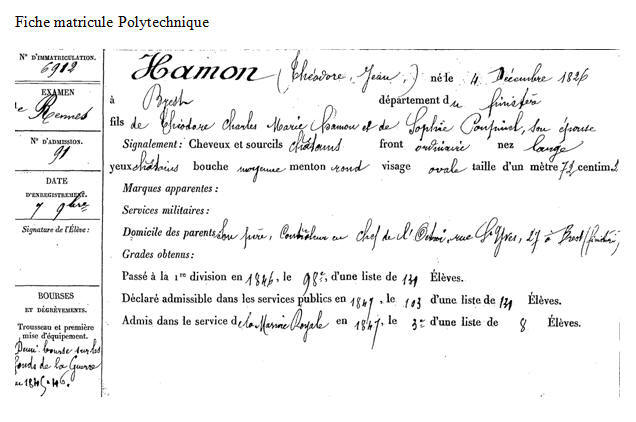 Fiche matricule Polytechnique
N° D'IMMATRICULATION.
6912
EXAMEN
de Rennes
N° D'ADMISSION.
91
DATE
D'ENREGISTREMENT.
7 9bre
Signature de l'Élève :
BOURSES
ET DÉGRÈVEMENTS.
Trousseau et première
mise d'équipement.
Demi bourse sur les
fonds de la Guerre
en 1845-46.
Hamon (Théodore, Jean,) né le 4 Décembre 1826
à Brest département du finistère
fils de Théodore Charles Marie Hamon et de Sophie son épouse
Signalement : Cheveux et sourcils châtains front ordinaire nez large
yeux châtains bouche moyenne menton rond visage ovale taille d'un mètre 72 centim.
Marques apparentes :
Services militaires :
Domicile des parents son père, Contrôleur en chef de l'Octroi, rue St Yves, 27 à Brest (finistère)
Grades obtenus :
Passé à la 1re division en 1846, le 98e, d'une liste de 131 Élèves.
Déclaré admissible dans les services publics en 1847, le 103 d'une liste de 131 Élèves.
Admis dans le service de la Marine Royale en 1847, le 3e d'une liste de 8 Élèves.